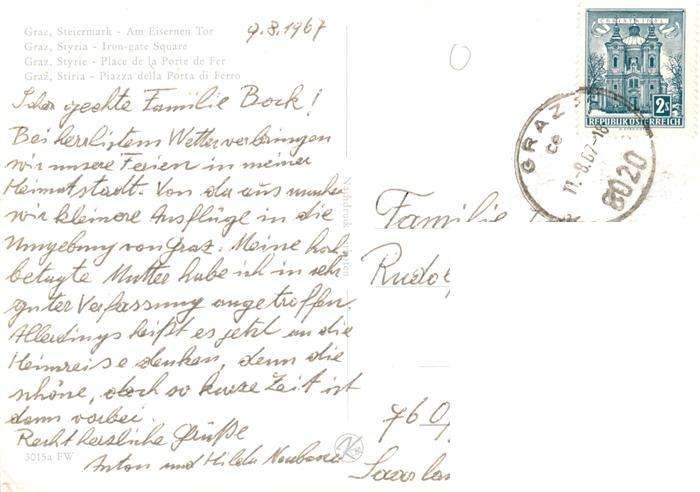 Graz, Steiermark - Am Eisernen Tor
Graz, Styria - Iron-gate Square
Graz, Styrie - Place de la Porte de Fer
Graž, Stiria - Piazza della Porta di Ferro
9.8.1967
geehrte Familie Bock!
Bei herrlichem Wetter verbringen
wir unsere Ferien in meiner
Heimatstadt. Von da aus machen
wir kleinere Ausflüge in die
Umgebung von Graz. Meine hoch
betagte Mutter habe ich in sehr
guter Verfassung angetroffen.
Allerdings heißt es jetzt an die
Heimreise denken, denn die
schöne, doch so kurze Zeit ist
dann vorbei.
Recht herzliche Grüße
Anton und Hilda
3015a FW
CHRISTKINDL
2S
REPUBLIK ÖSTERREICH
GRAZ 2
11.-8.67-18
8020
Familie